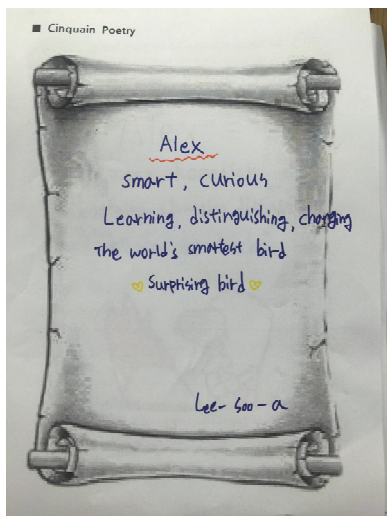 ■ Cinquain Poetry
Alex
smart, curious
Learning, distinguishing, changing
The world's smartest bird
Surprising bird
Lee-Soo-a